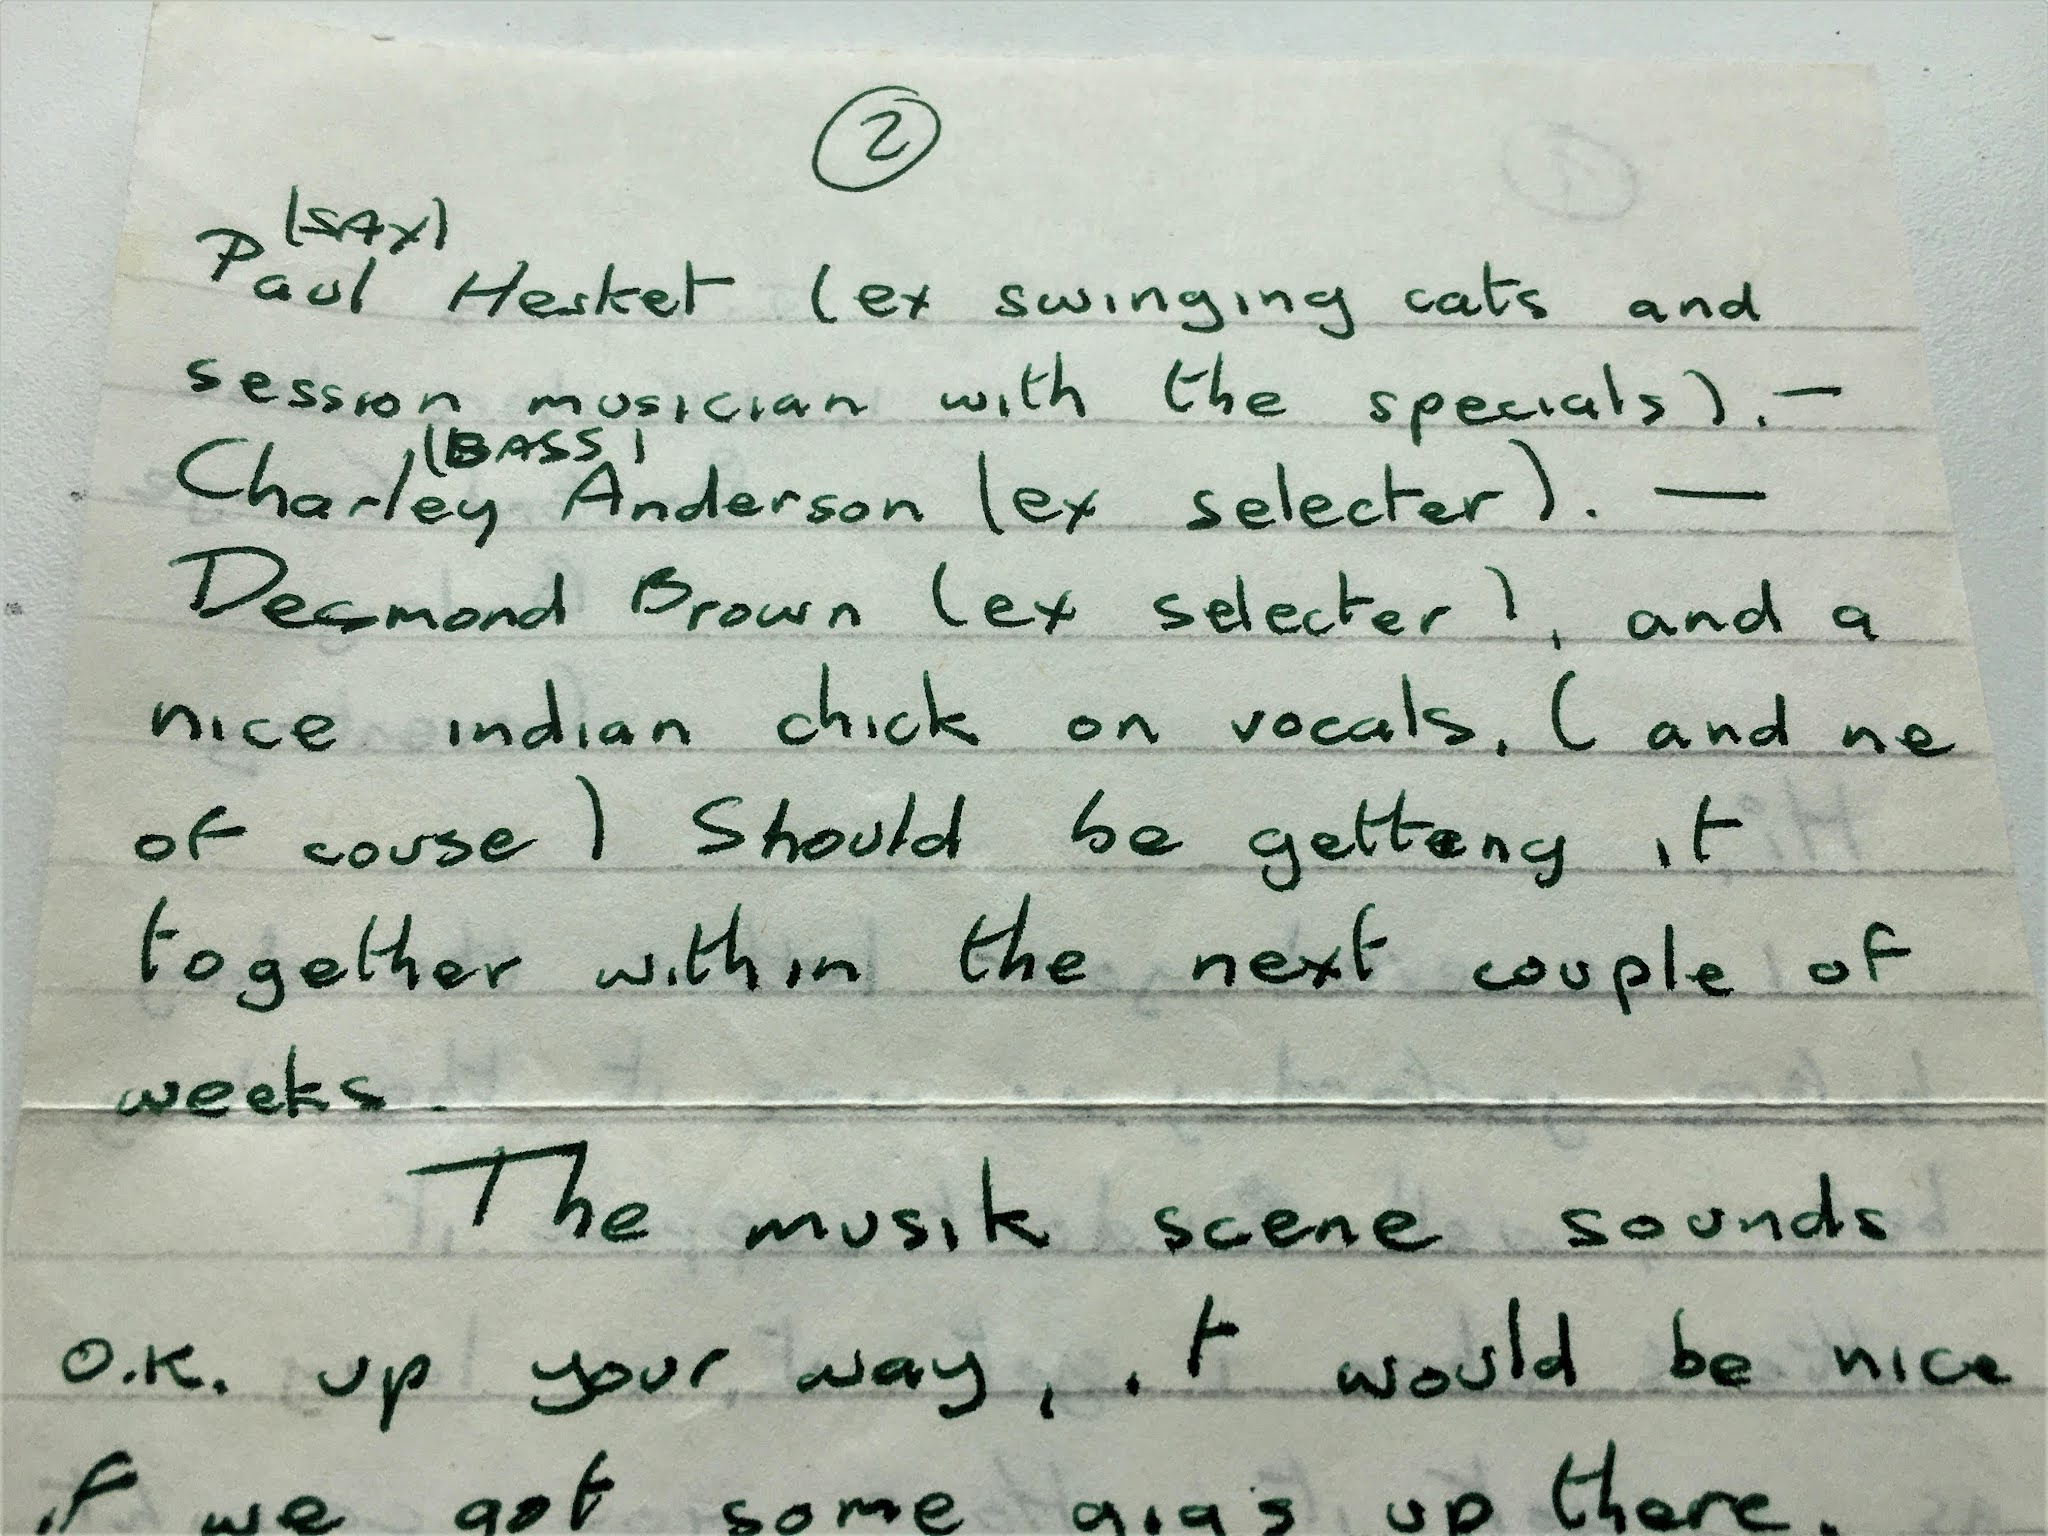 2
(SAX)
Paul Hesket (ex swinging cats and
session musician with the specials). —
(BASS)
Charley Anderson (ex selecter). —
Desmond Brown (ex selecter), and a
nice indian chick on vocals. (and me
of couse) Should be getteng it
together within the next couple of
weeks.
The musik scene sounds
o.k. up your way, it would be nice
if we got some gigs up there.